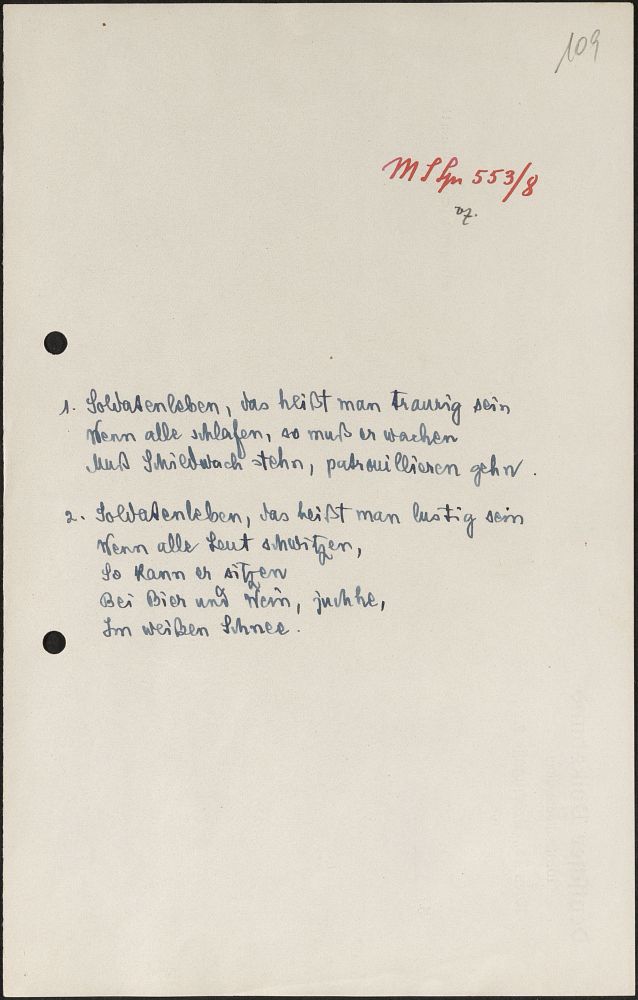 109
553/8
1. Soldatenleben, das heißt man traurig sein
Wenn alle schlafen, so muß er wachen
Muß Schildwach stehn, patrouillieren gehn.
2. Soldatenleben, das heißt man lustig sein
Wenn alle Leut schwitzen,
So kann er sitzen
Bei Bier und Wein, juchhe,
Im weißen Schnee.